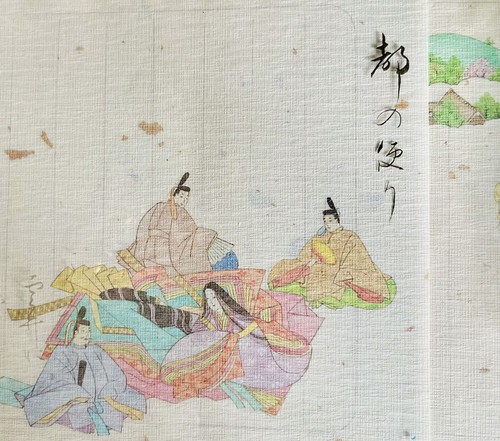 都の便り